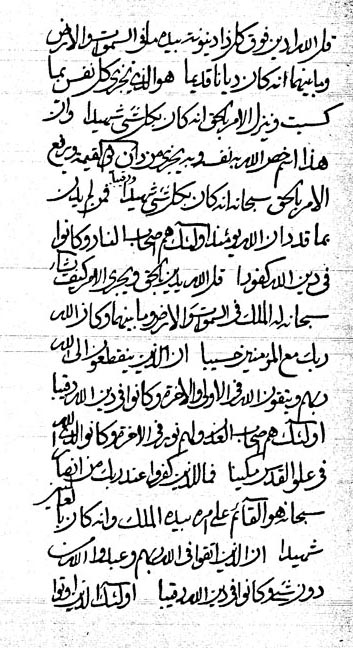 قل الله ادين فوق كل ذا دينونة بيده ملكوت السموات والارض
وما بينهما انه كان ديانا قديما هو الذي يجزي كل نفس بما
كسبت وينزل الامر بالحق انه كان بكل شيء شهيدا وان
هذا اسم خص الله به نفسه و به يجزي من دان في القيمة ويرفع
الامر بالحق سبحانه انه كان بكل شيء شهيدا فمن لم يدن
بما قد دان الله يومئذ اولئك هم اصحاب النار وكانوا
في دين الله كفورا قل الله يدين بالحق ويجري الامر كيف يشاء
سبحانه له الملك في السموات والارض وما بينهما وكان الله
ربك مع المؤمنين حسيبا ان الذين ينقطعون الى الله
ربهم ويتقون الله في الاولى والاخرة وكانوا في دين الله رقيبا
اولئك هم اصحاب العدل ولهم نور في الاخرة وكانوا لدى الله
في علو القدر مكينا فما للذين كفروا عند ربك من
سبحانه هو القائم على امره بيده الملك وانه كان بالعالمين
شهيدا ان الذين اتقوا في الله ربهم وعبدوا الله من
دون شيء وكانوا في دين الله رقيبا اولئك الذين اوتوا